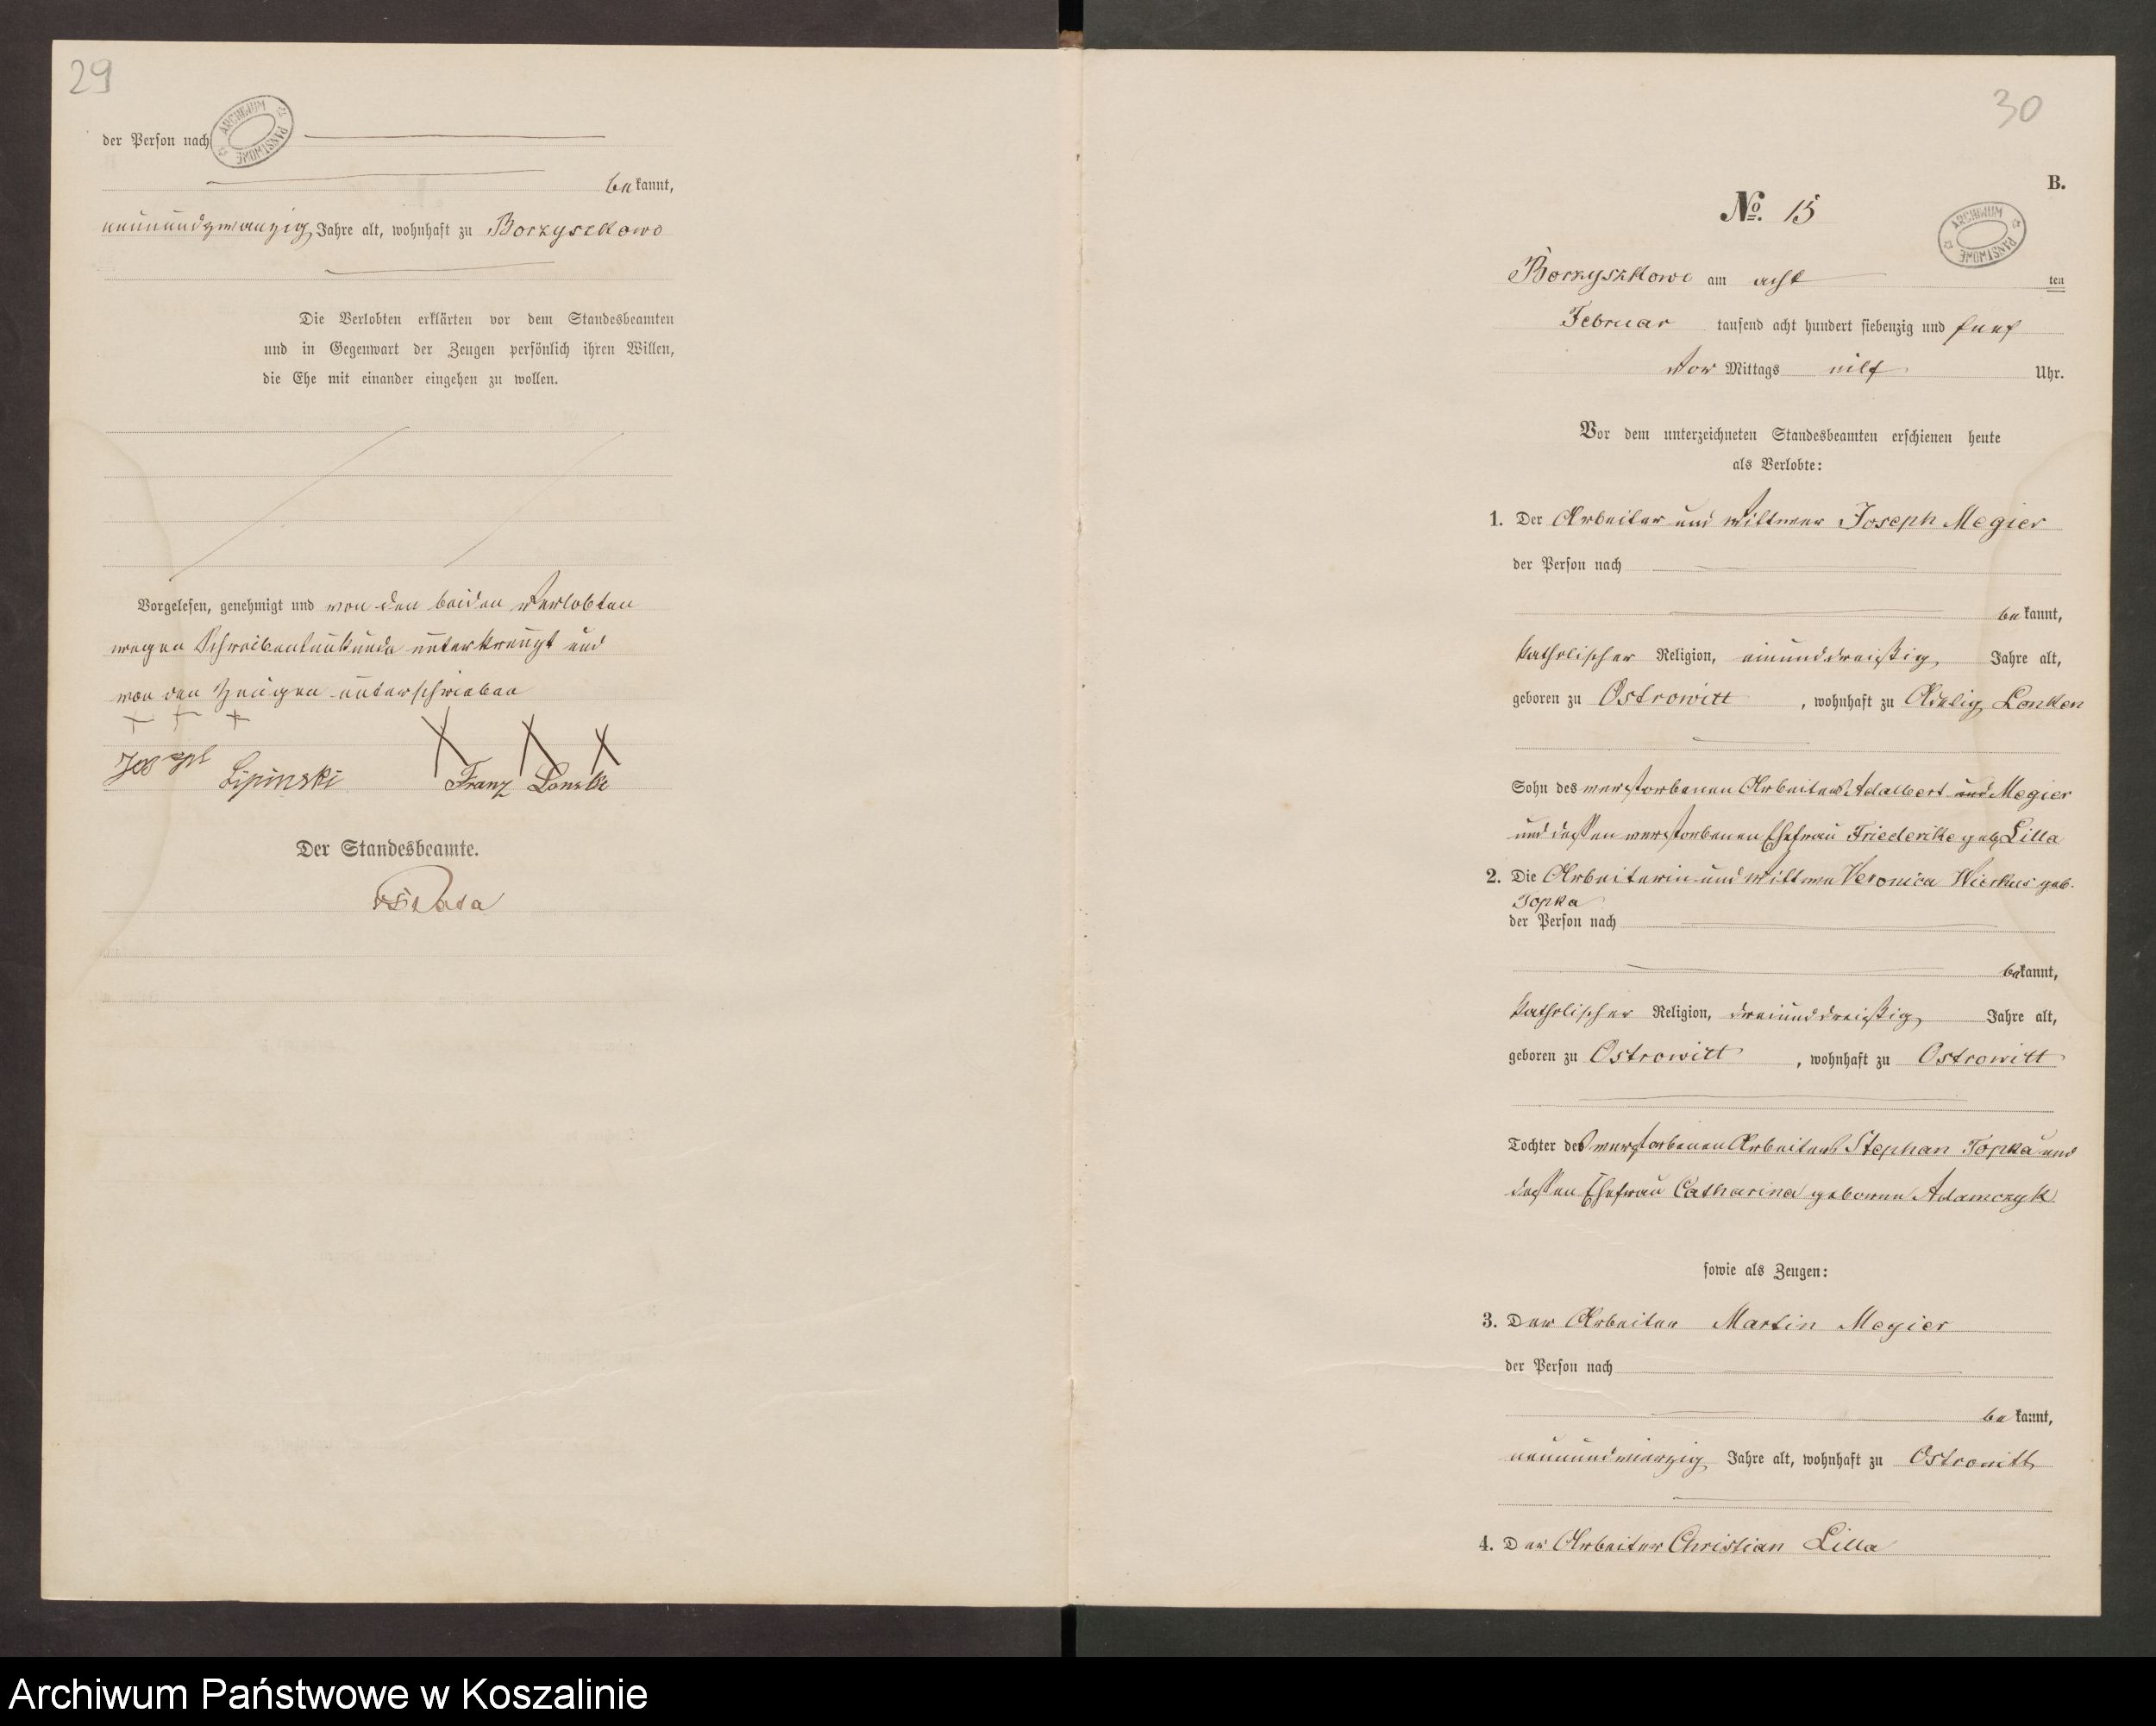 29
der Person nach
bekannt,
neunundzwanzig Jahre alt, wohnhaft zu Borzyszkowo
Die Verlobten erklärten vor dem Standesbeamten
und in Gegenwart der Zeugen persönlich ihren Willen,
die Ehe mit einander eingehen zu wollen.
Vorgelesen, genehmigt und von den beiden Verlobten
wegen Schreibensunkunde unterkreuzt und
von den Zeugen unterschrieben
+ + +
Joseph Lipinski Franz Lonske
Der Standesbeamte.
ARCHIWUM PAŃSTWOWE
30
B.
No. 15
ARCHIWUM PAŃSTWOWE
Borzyszkowo am acht ten
Februar tausend acht hundert siebenzig und fünf
Vor Mittags eilf Uhr.
Vor dem unterzeichneten Standesbeamten erschienen heute
als Verlobte:
1. Der Arbeiter und Wittwer Joseph Megier
der Person nach
bekannt,
katholischer Religion, einunddreißig Jahre alt,
geboren zu Ostrowitt, wohnhaft zu Adelig Lonken
Sohn des verstorbenen Arbeiters Adalbert und Megier
und dessen verstorbenen Ehefrau Friederike geb. Lilla
2. Die Arbeiterin und Wittwe Veronica Wierkus geb.
Topka
der Person nach
bekannt,
katholischer Religion, dreiunddreißig Jahre alt,
geboren zu Ostrowitt, wohnhaft zu Ostrowitt
Tochter des verstorbenen Arbeiters Stephan Topka und
dessen Ehefrau Catharina geborene Adamczyk
sowie als Zeugen:
3. Der Arbeiter Martin Megier
der Person nach
bekannt,
neunundvierzig Jahre alt, wohnhaft zu Ostrowitt
4. Der Arbeiter Christian Lilla
Archiwum Państwowe w Koszalinie